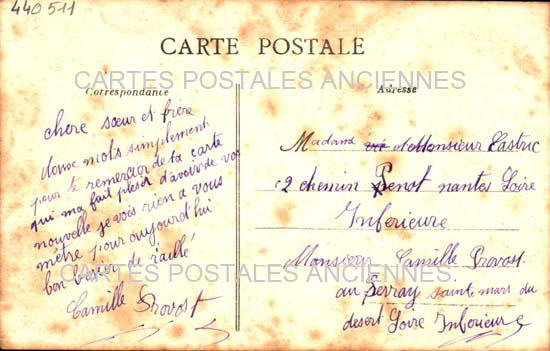 440511
CARTE POSTALE
CARTES POSTALES ANCIENNES
Correspondance
Adresse
chere sœur et frere
deux mots simplement
pour te remercier de ta carte
qui ma fait plesir d'avoir de vos
nouvelle je vois rien a vous
mètre pour aujourd'hui
bon baiser de
Camille Provost
Madame et Monsieur Castric
2 chemin nantes Loire
Inferieure
Monsieur Camille Provost
au saint mars du
desert Loire Inferieure
CARTES POSTALES ANCIENNES